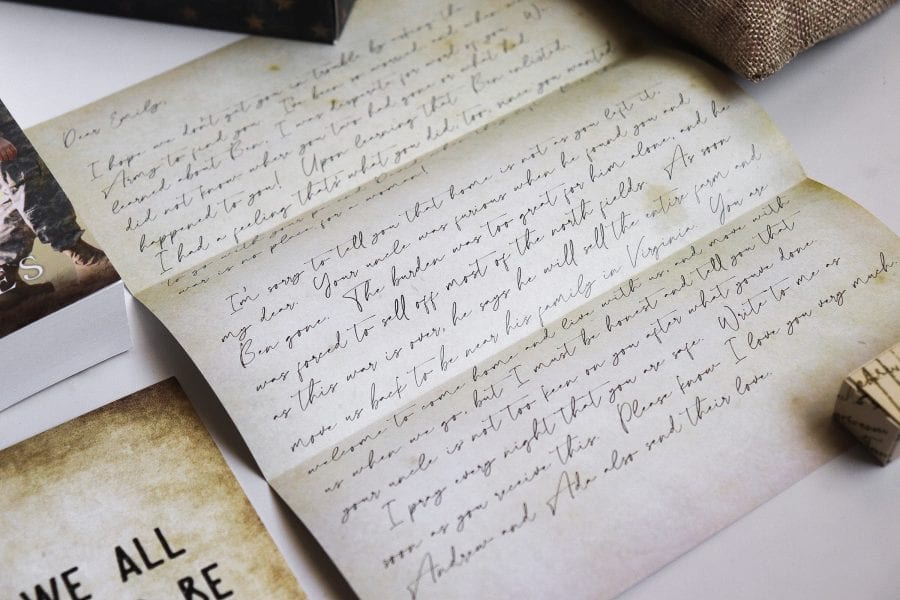 Dear Emily,
I hope we don't get you in trouble by asking the
Army to find you. I'm been so worried and when we
learned about Ben, I was desperate for word of you. We
did not know where you two had gone or what had
happened to you! Upon learning that Ben enlisted,
I had a feeling that's what you did, too, since you wanted
war is no place for a woman!
I'm sorry to tell you that home is not as you left it,
my dear. Your uncle was furious when he found you and
Ben gone. The burden was too great for him alone, and he
was forced to sell off most of the north fields. As soon
as this war is over, he says he will sell the entire farm and
move us back to be near his family in Virginia. You are
welcome to come home and live with us, and move with
us when we go, but I must be honest and tell you that
your uncle is not too keen on you after what you've done.
I pray every night that you are safe. Write to me as
soon as you receive this. Please know I love you very much.
Andrew and Ada also send their love.
ES
WE ALL
BE